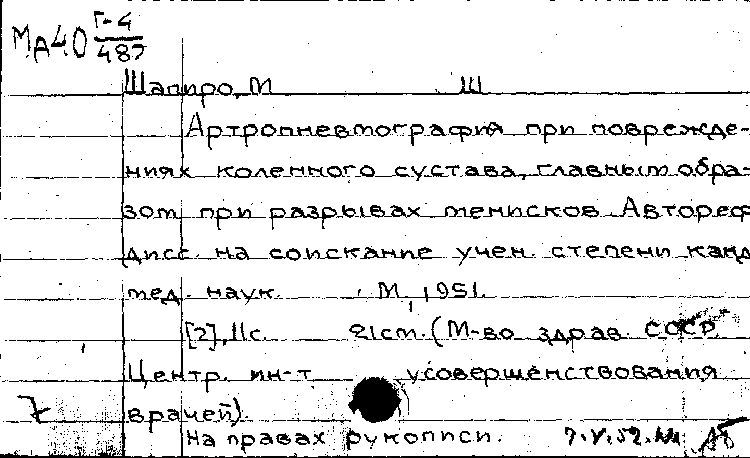 Мд40 Г-4/487
Шапиро, М Ш
Артропневмография при поврежде-
ниях коленного сустава, главным обра-
зом при разрывах менисков. Автореф
дисс. на соискание учен. степени канд
мед. наук. М., 1951.
[2], 11с. 21см. (М-во здрав. СССР.
Центр. ин-т усовершенствования
7 врачей).
На правах рукописи. 7.V.52.